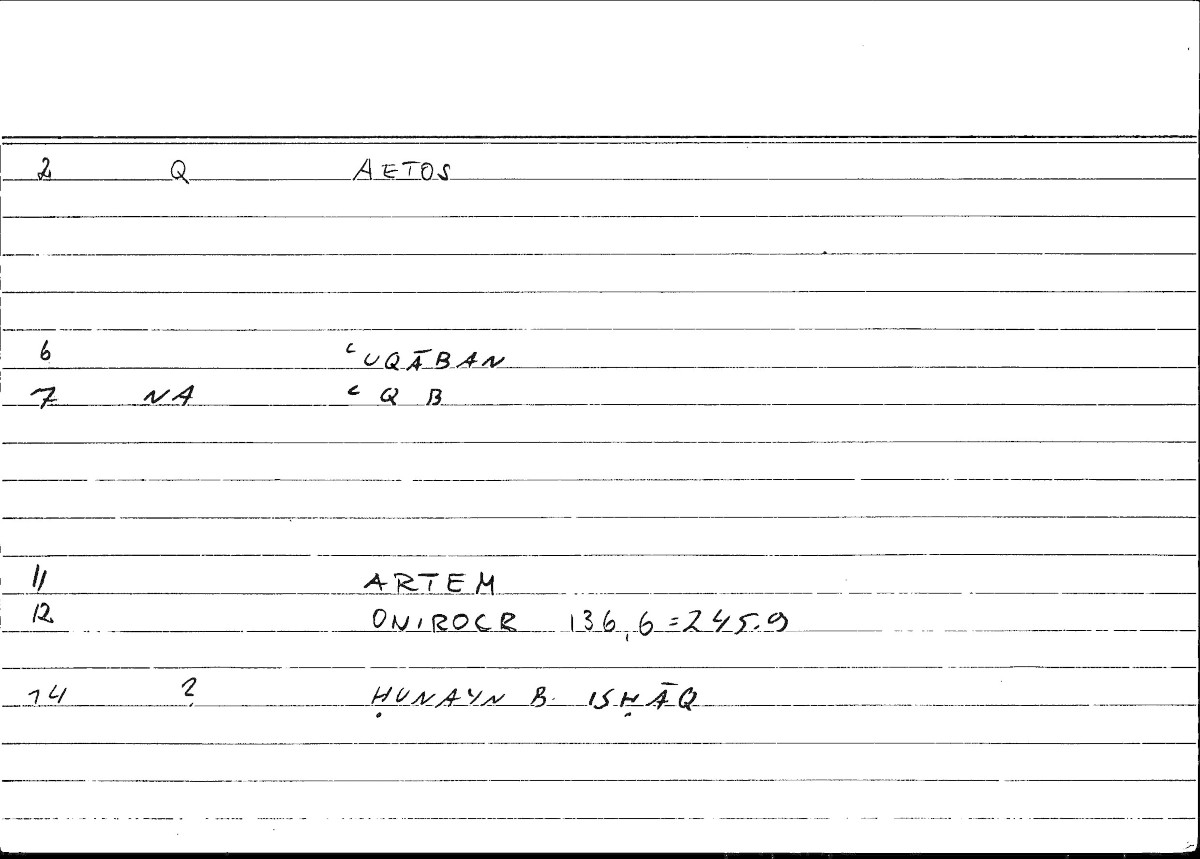 2 Q AETOS
6 ʿUQĀBAN
7 NA ʿ Q B
11 ARTEM
12 ONIROCR 136,6=245.9
14 ? ḤUNAYN B. ISḤĀQ